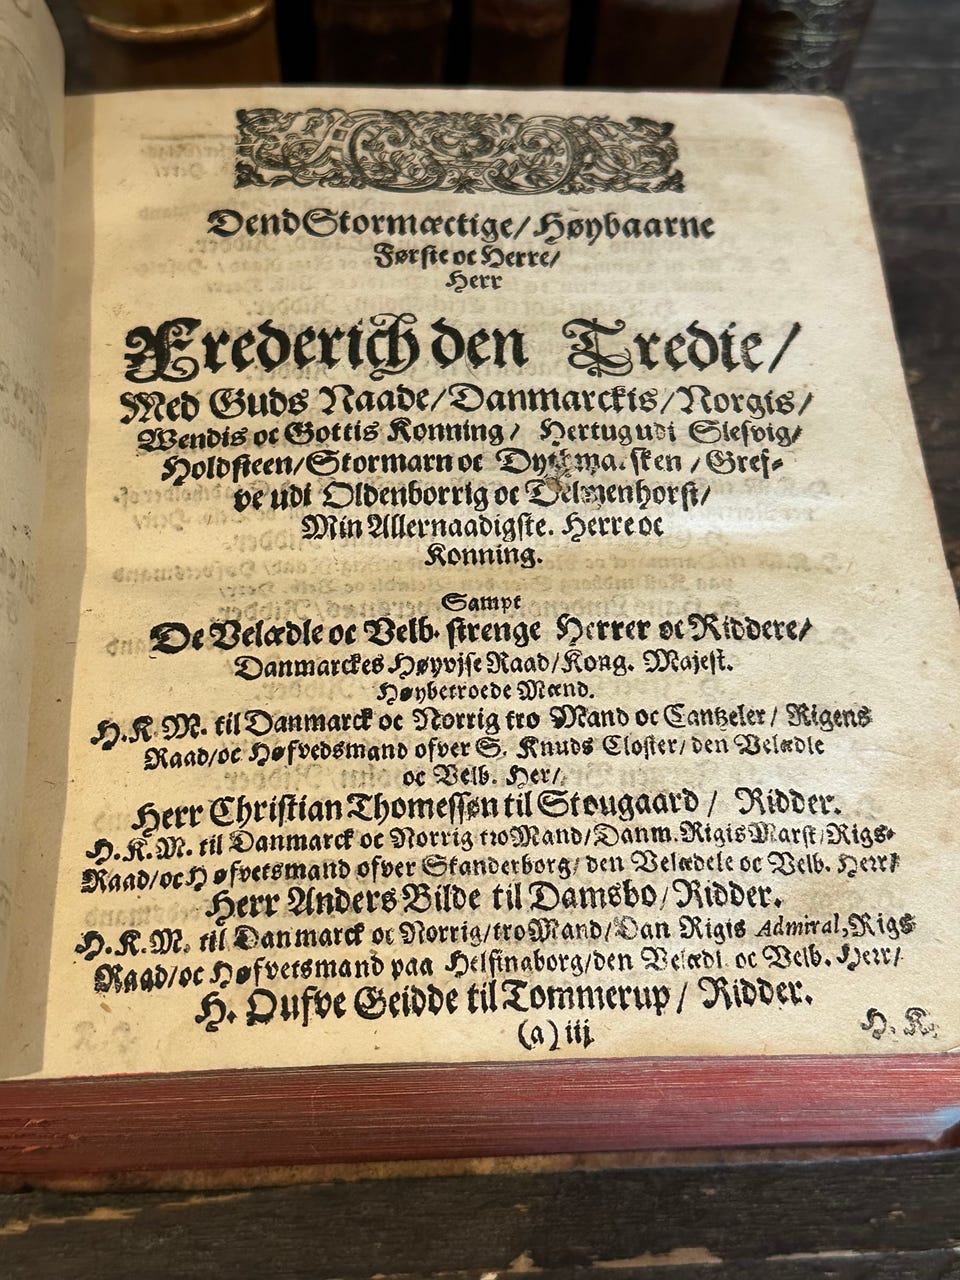 Dend Stormæctige/ Høybaarne
Første oc Herre/
Herr
Frederich den Tredie/
Med Guds Naade/Danmarckis/Norgis/
Wendis oc Gottis Konning/ Hertug udi Slesvig/
Holdsteen/Stormarn oc /Gref-
ve udi Oldenborrig oc Delmenhorst/
Min Allernaadigste. Herre oc
Konning.
Sampt
De Velædle oc Velb. strenge Herrer oc Riddere/
Danmarckes Høyvjse Raad/Kong. Majest.
Høybetroede Mænd.
H.K.M. til Danmarck oc Norrig tro Mand oc Cantzeler/ Rigens
Raad/oc Høfvedsmand ofver S. Knuds Closter/den Velædle
oc Velb. Her/
Herr Christian Thomessøn til Stougaard/ Ridder.
H.K.M. til Danmarck oc Norrig tro Mand/Danm.Rigis Marsk/Rigs-
Raad/oc Høfvetsmand ofver Skanderborg/den Velædele oc Velb. Herr/
Herr Anders Bilde til Damsbo/Ridder.
H.K.M. til Danmarck oc Norrig/tro Mand/Dan Rigis Admiral,Rigs
Raad/oc Høfvetsmand paa Helsingborg/den Velædl oc Velb. Herr/
H. Oufve Geidde til Tommerup/ Ridder.
(a) iij
H. K.